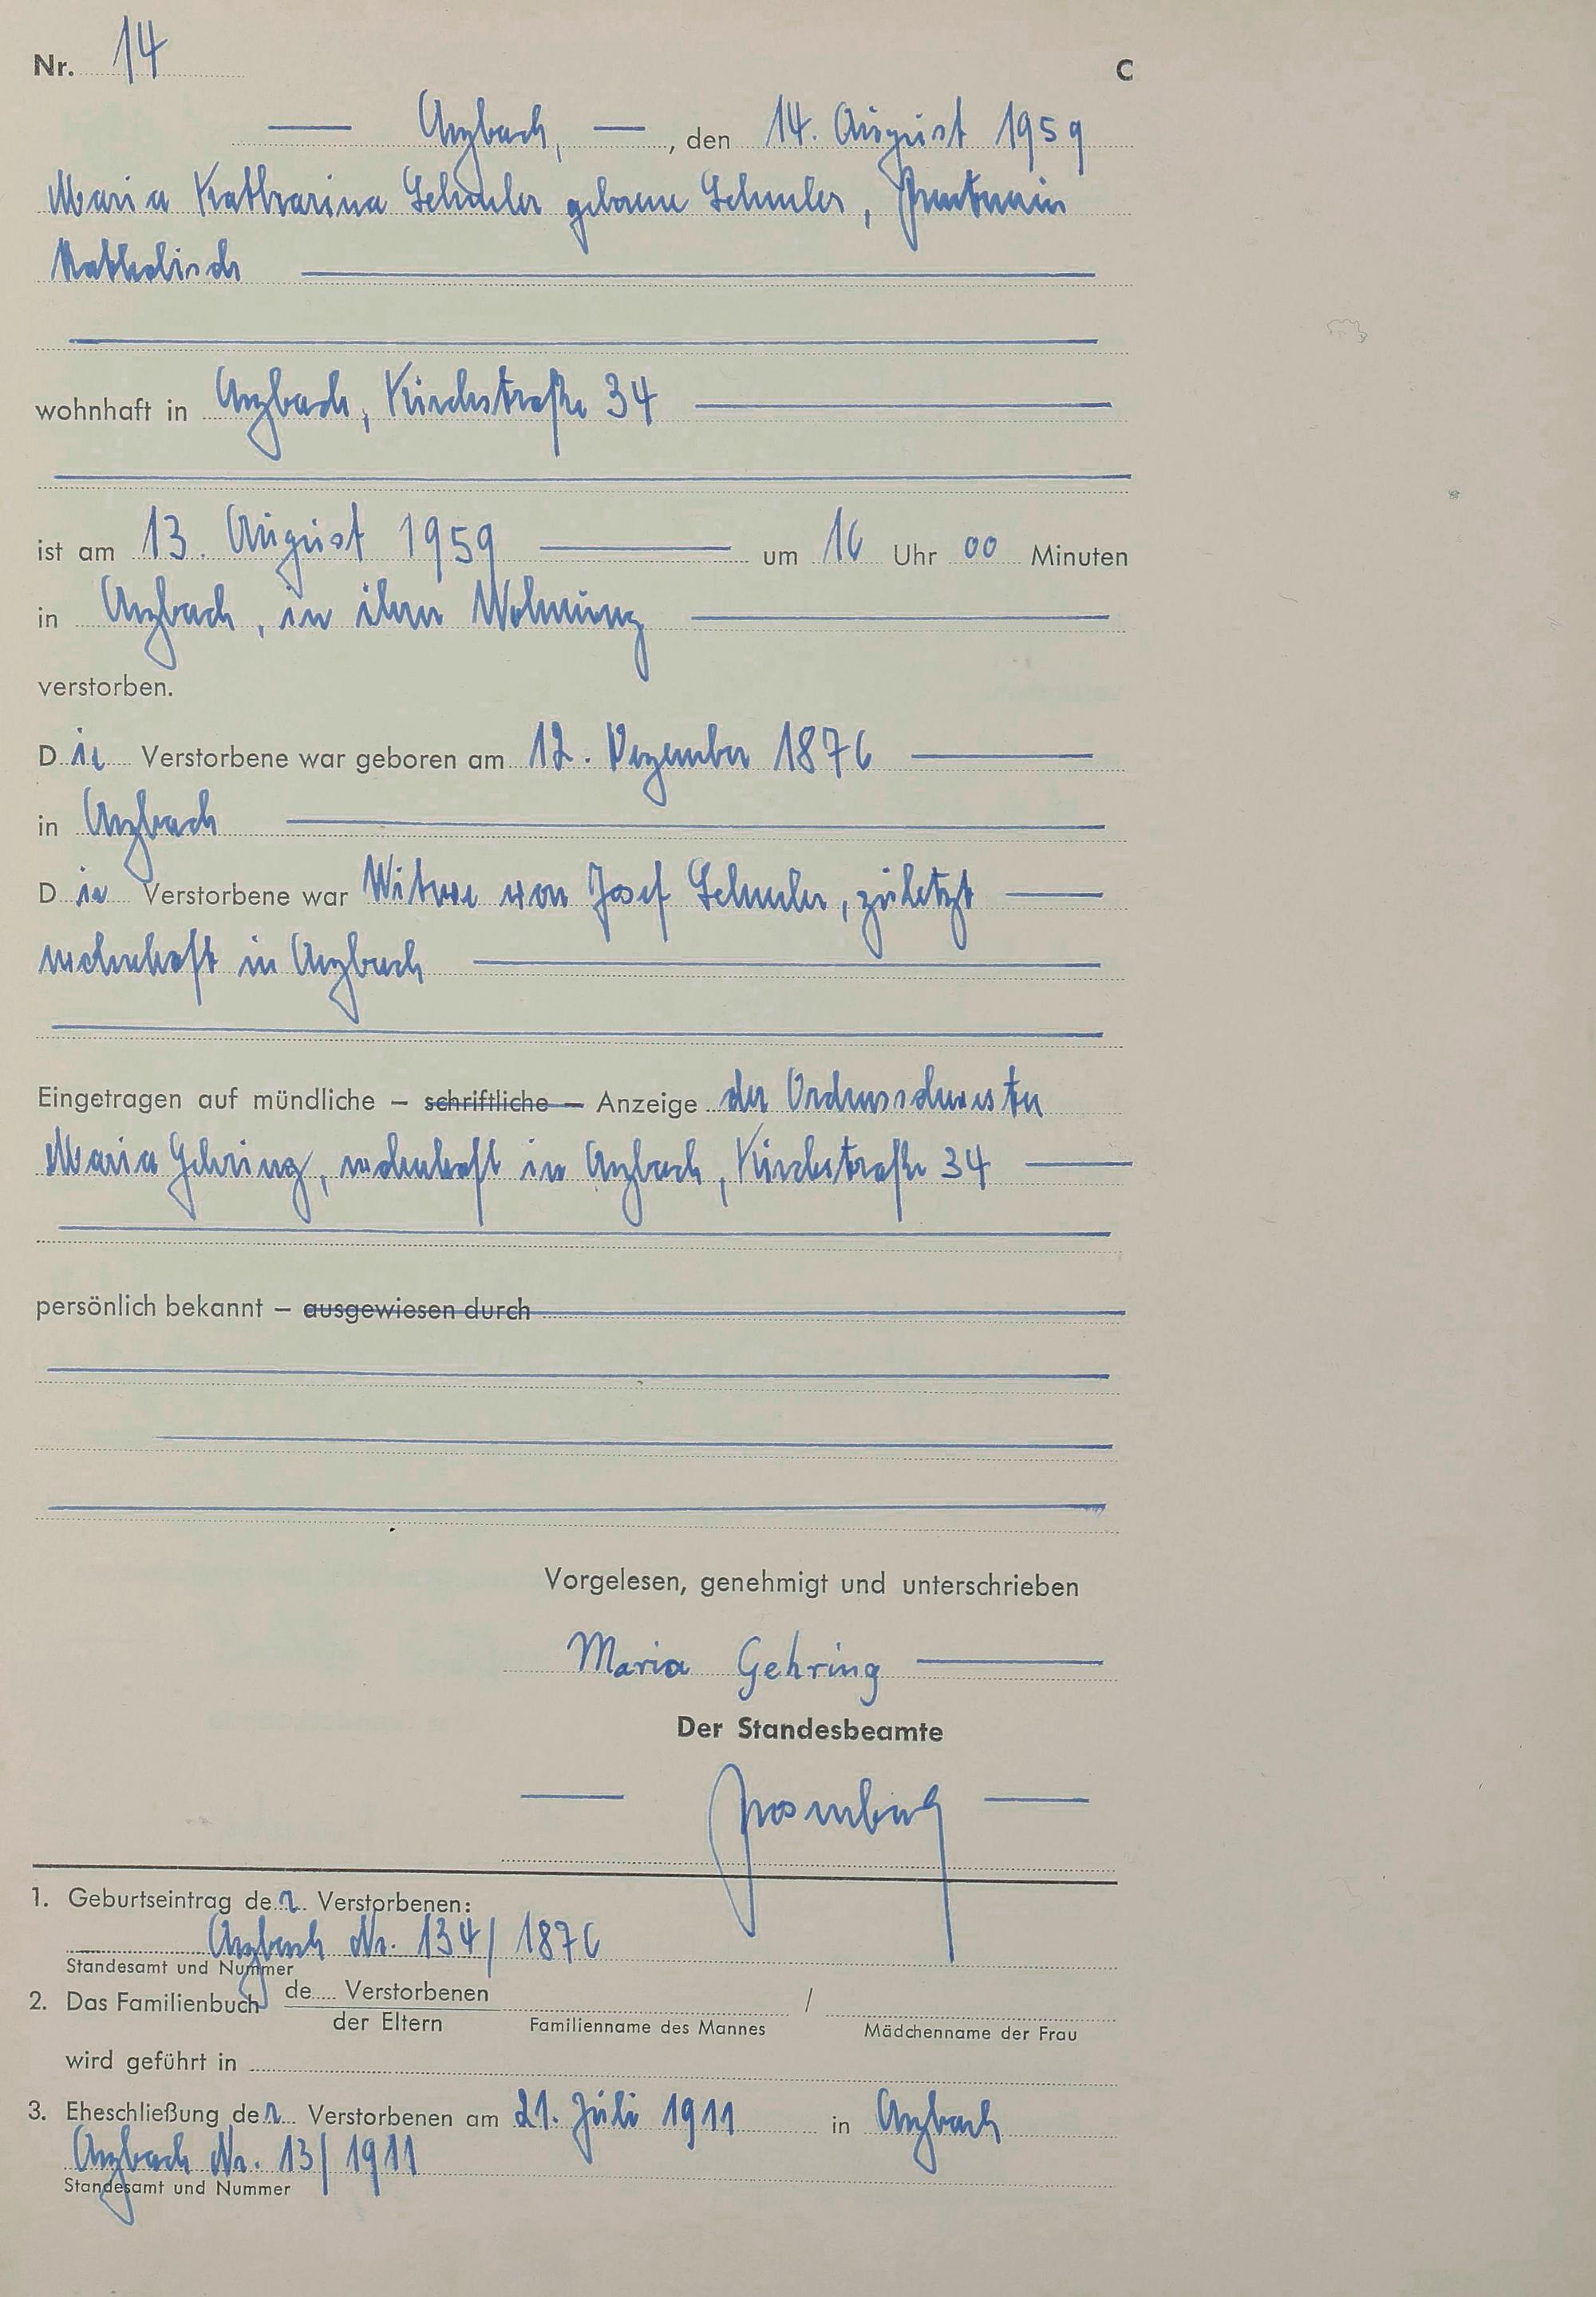 Nr. 14 C
Arzbach, , den 14. August 1959
Maria Katharina Schuler geborene Schuler, Rentnerin
Katholisch
wohnhaft in Arzbach, Kirchstraße 34
ist am 13. August 1959 um 16 Uhr 00 Minuten
in Arzbach, in ihrer Wohnung
verstorben.
Die Verstorbene war geboren am 12. Dezember 1876
in Arzbach
Die Verstorbene war Witwe von Josef Schuler, zuletzt
wohnhaft in Arzbach
Eingetragen auf mündliche – schriftliche – Anzeige der Ordensschwester
Maria Gehring, wohnhaft in Arzbach, Kirchstraße 34
persönlich bekannt – ausgewiesen durch
Vorgelesen, genehmigt und unterschrieben
Maria Gehring
Der Standesbeamte
1. Geburtseintrag der Verstorbenen:
Arzbach Nr. 134/1876
Standesamt und Nummer
2. Das Familienbuch de..... Verstorbenen /
der Eltern Familienname des Mannes Mädchenname der Frau
wird geführt in
3. Eheschließung der Verstorbenen am 21. Juli 1911 in Arzbach
Arzbach Nr. 13/1911
Standesamt und Nummer